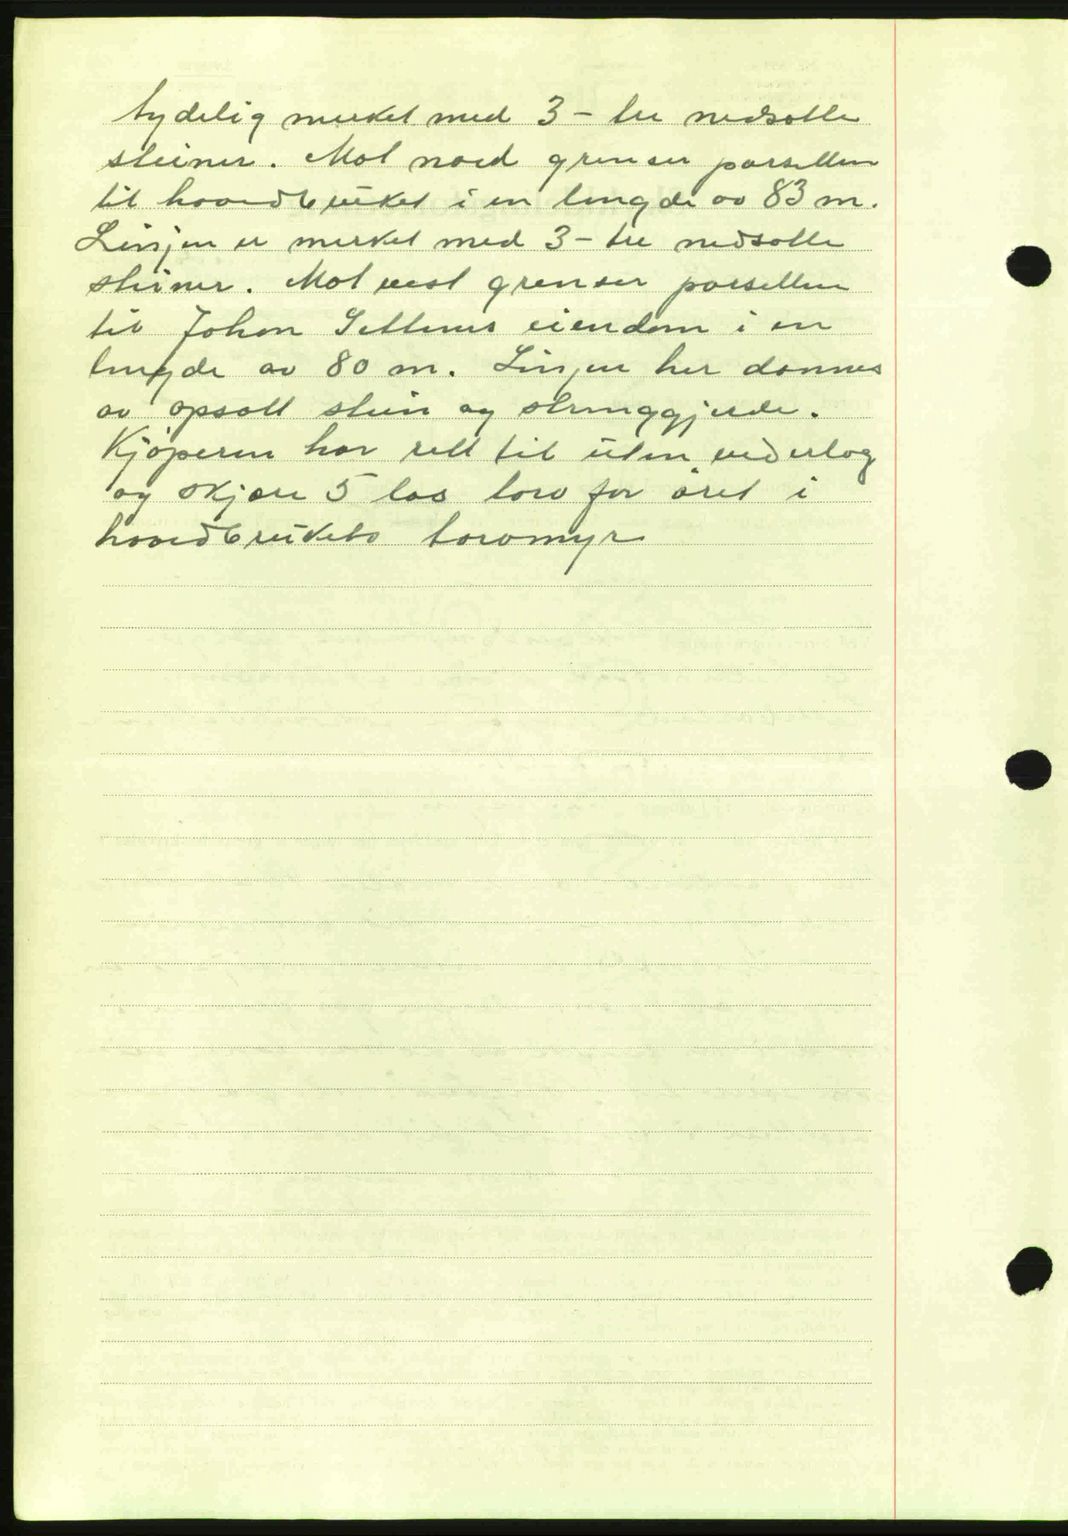 tydelig merket med 3 - tre nedsatte
steiner. Mot nord grenser parsellen
til hovedbruket i en lengde av 83 m.
Linjen er merket med 3 - tre nedsatte
steiner. Mot vest grenser parsellen
til Johan eiendom i en
lengde av 80 m. Linjen her dannes
av opsatt stein og strenggjerde.
Kjøperen har rett til uten vederlag
og skjære 5 las torv for året i
hovedbrukets torvmyr